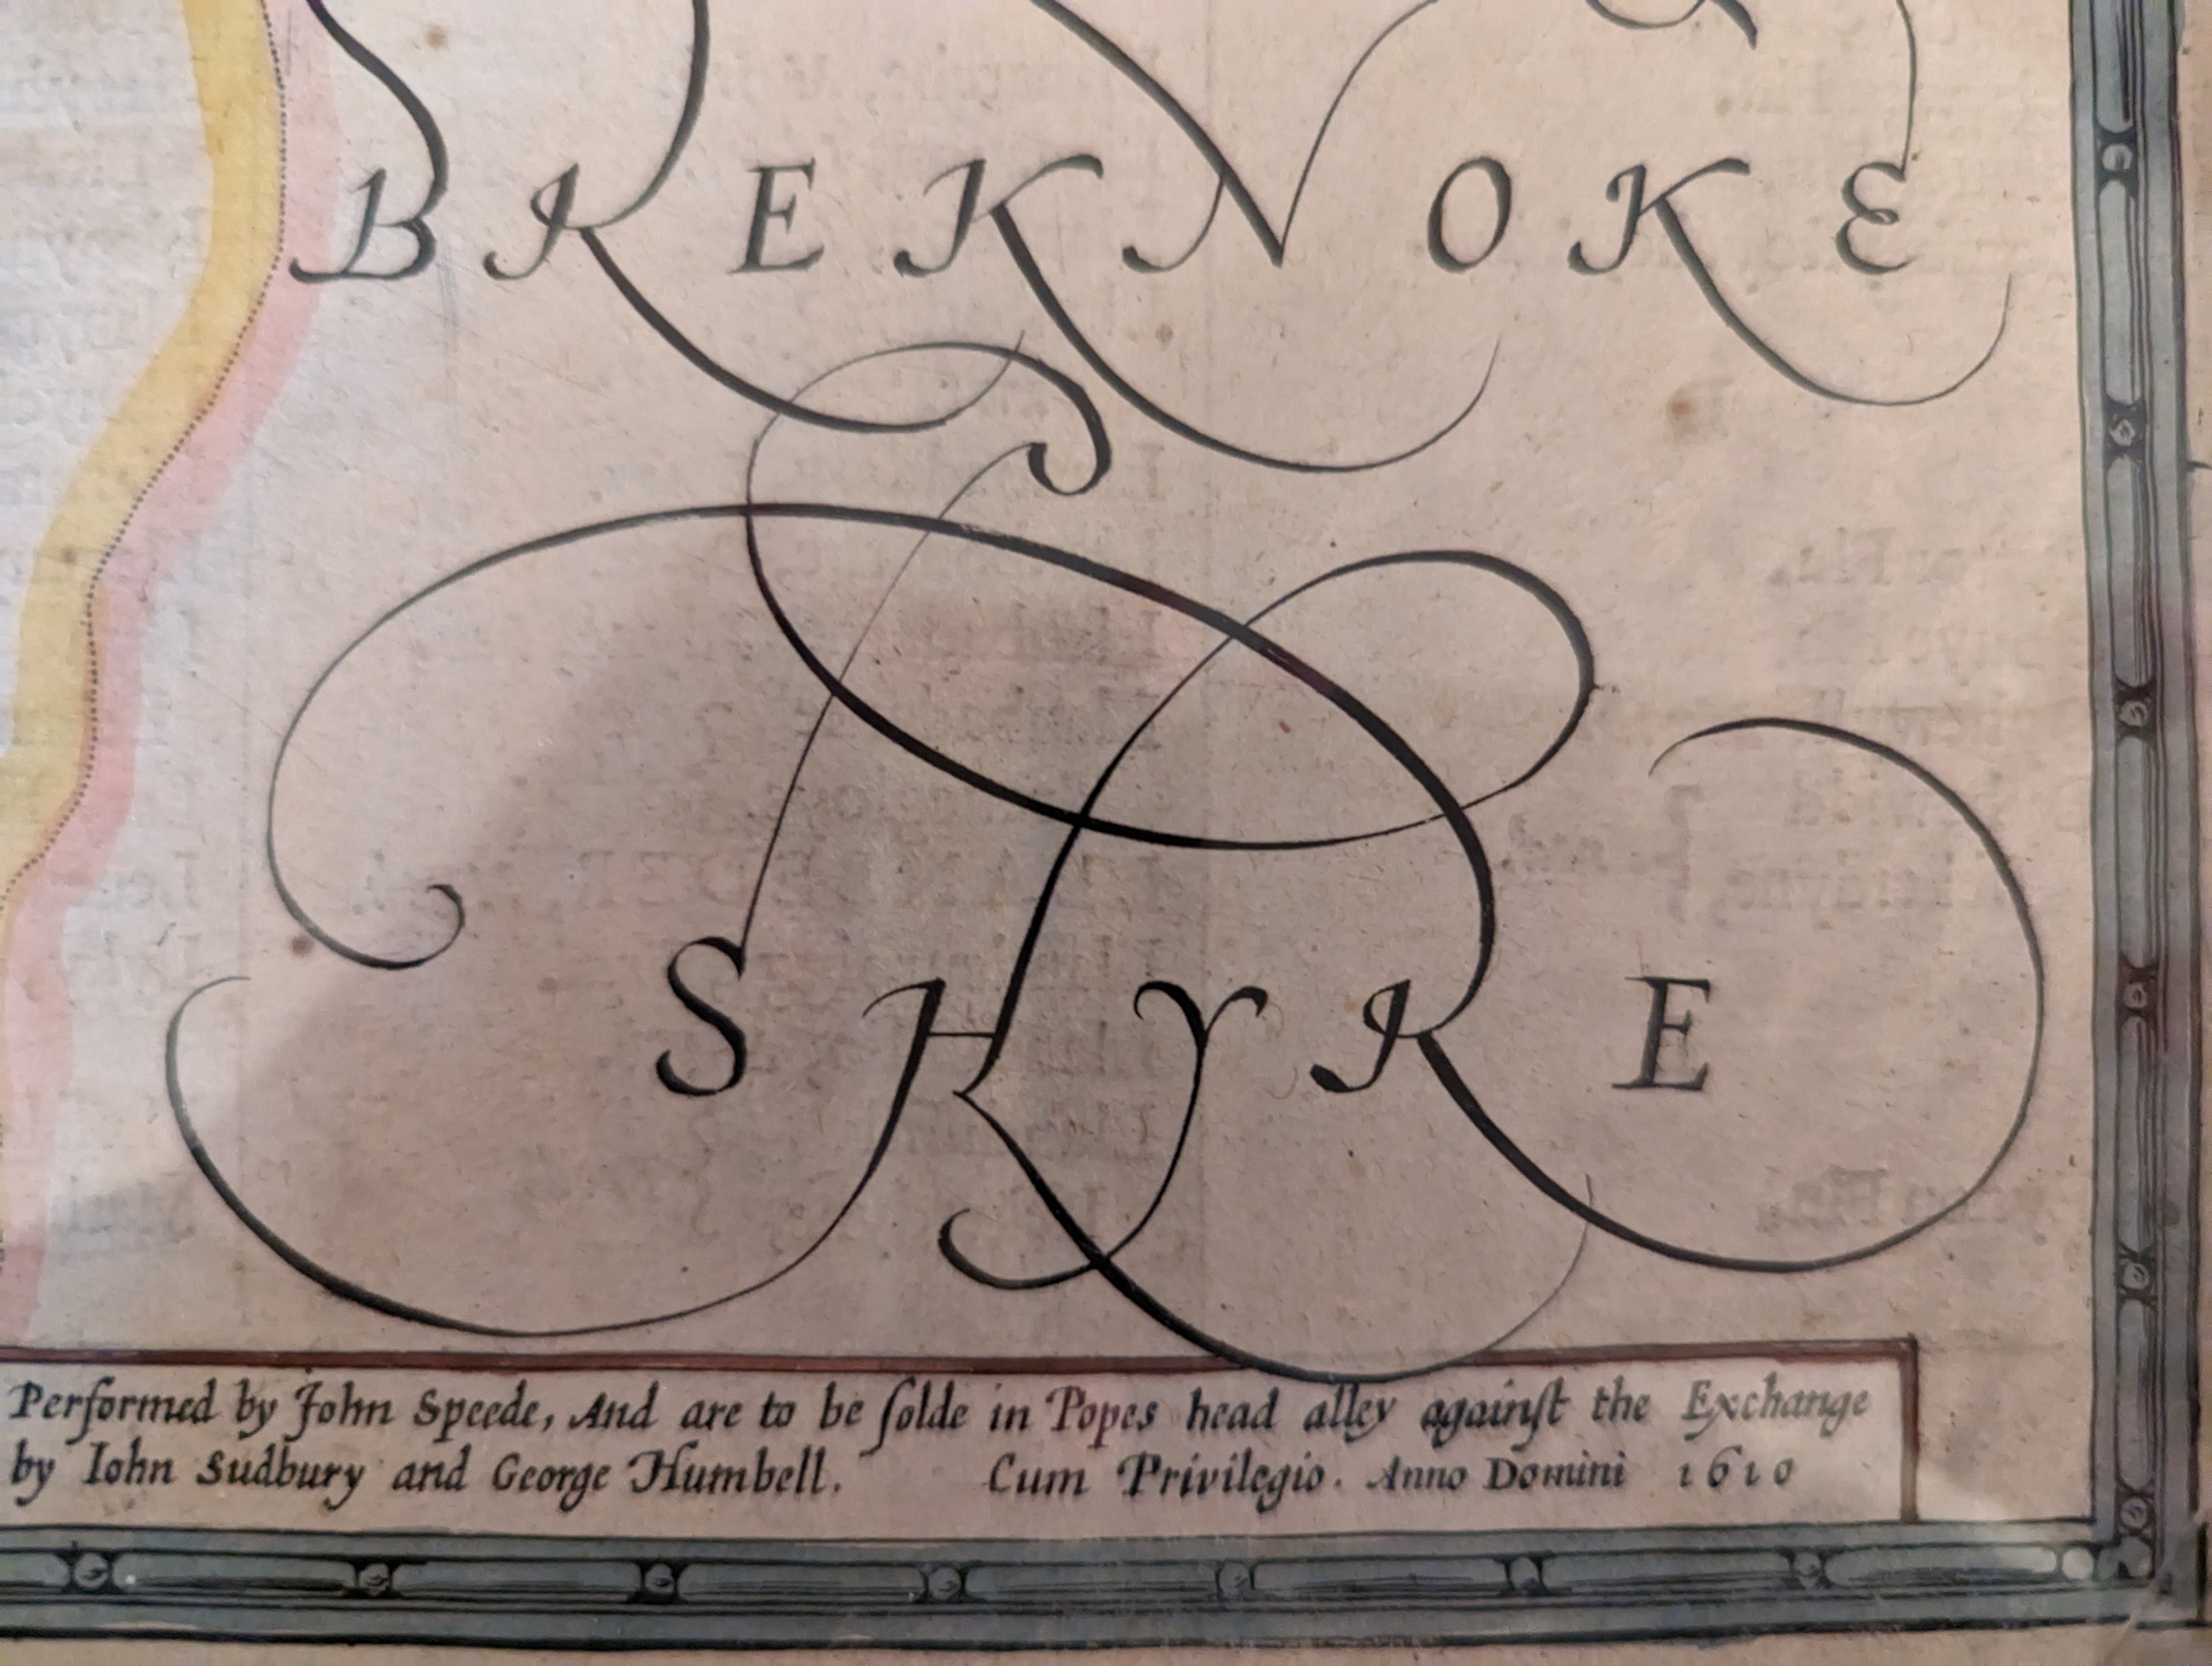 BREKNOKE
SHYRE
Performed by John Speede, And are to be ſolde in Popes head alley againſt the Exchange
by Iohn Sudbury and George Humbell. Cum Privilegio. Anno Domini 1610